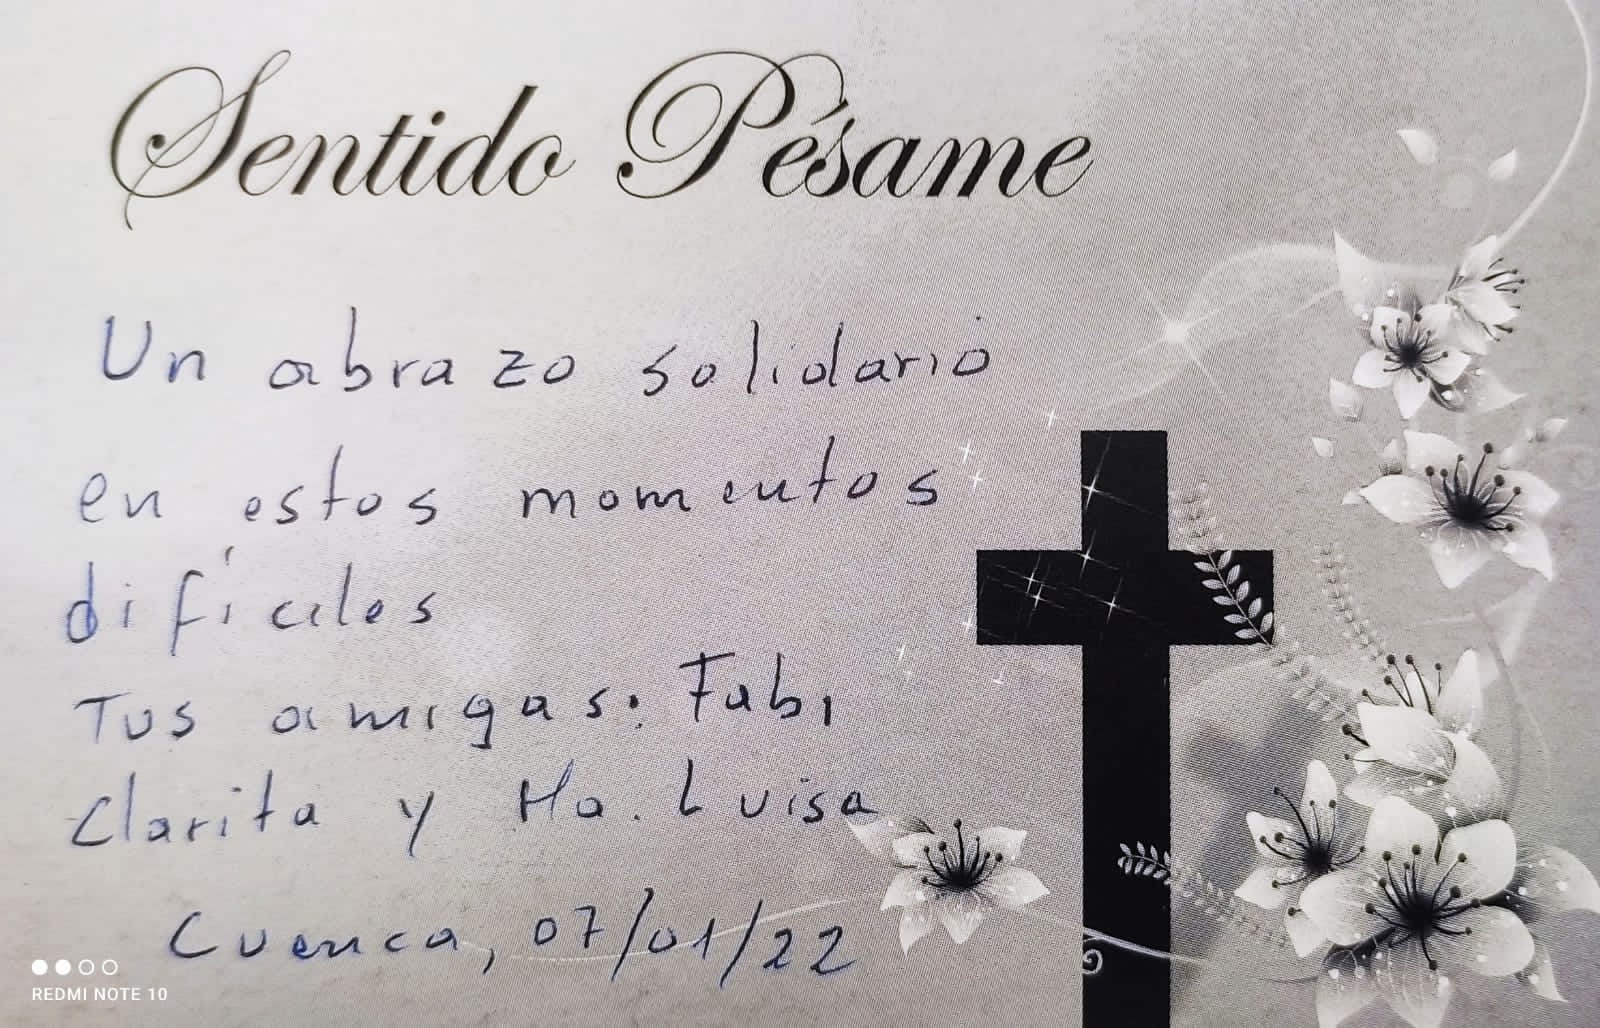 Sentido Pésame
Un abrazo solidario
en estos momentos
difíciles
Tus amigas: Fabi
Clarita y Ma. Luisa
Cuenca, 07/01/22
REDMI NOTE 10